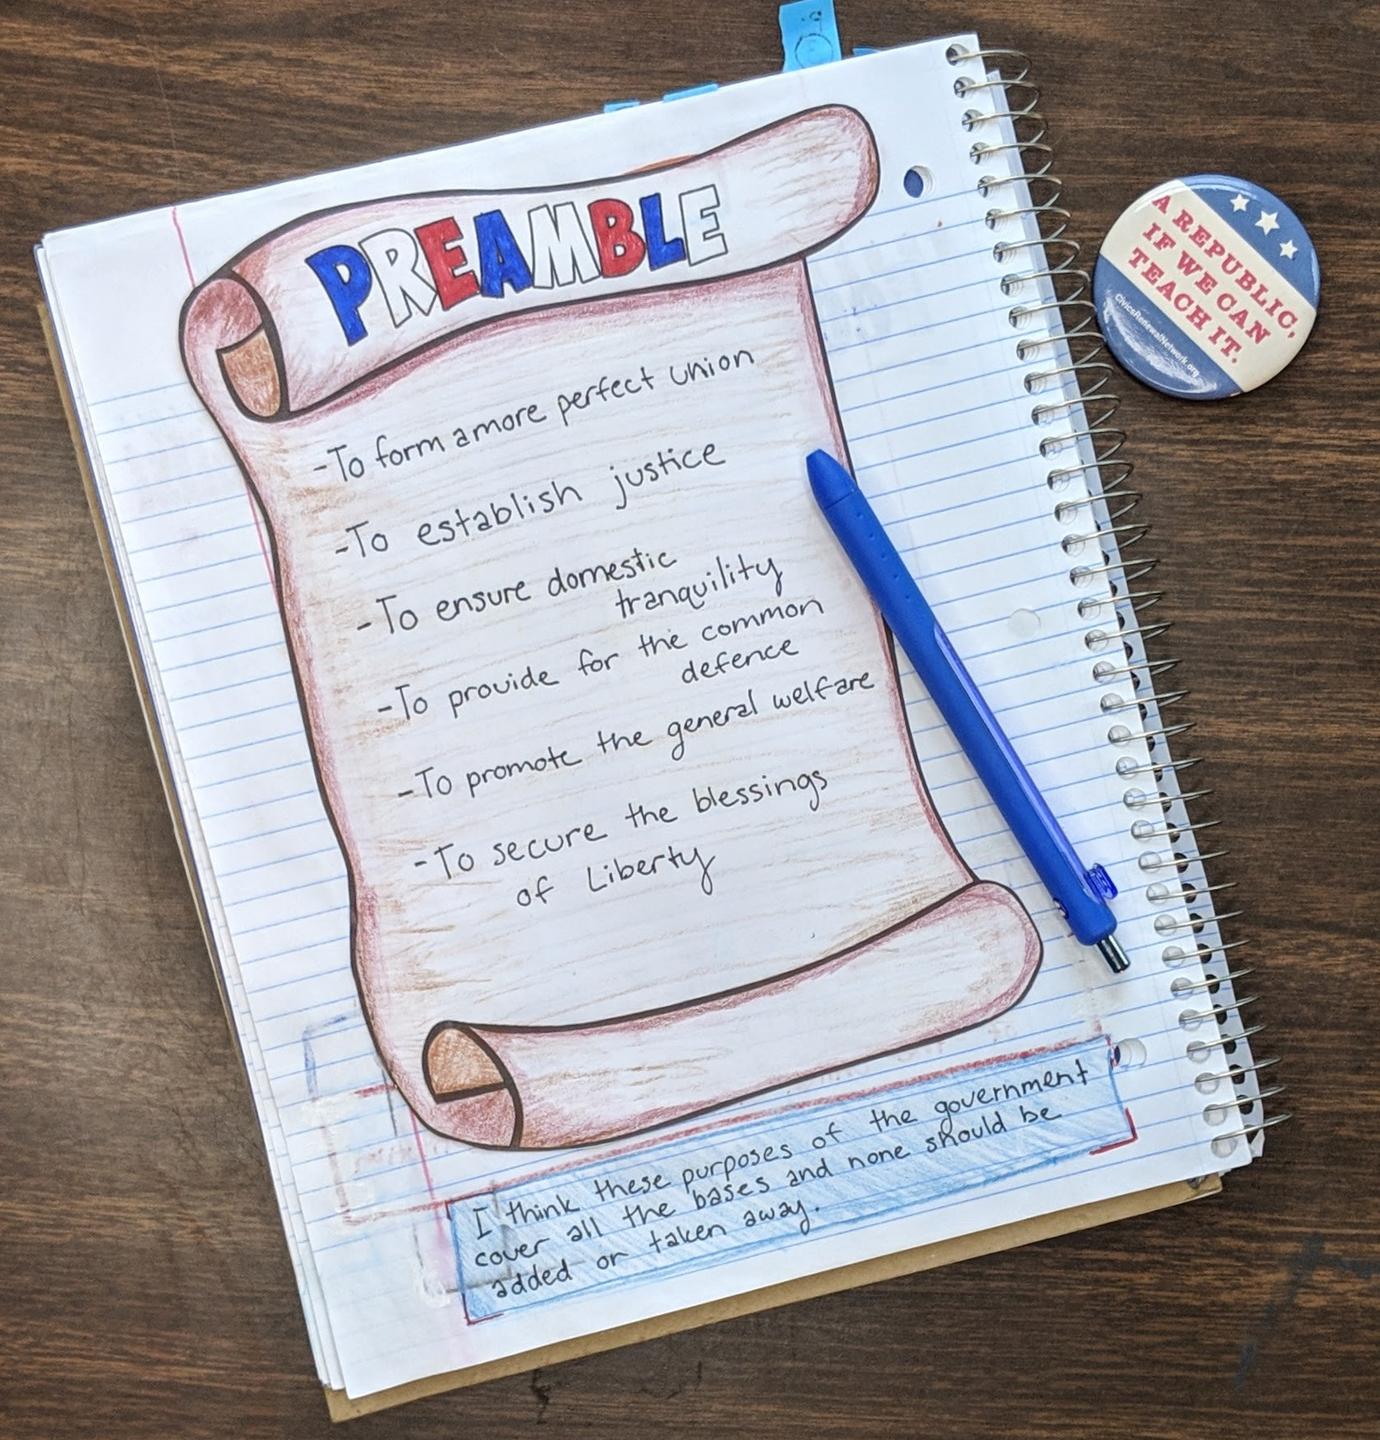 PREAMBLE
-To form a more perfect union
-To establish justice
-To ensure domestic
tranquility
-To provide for the common
defence
-To promote the general welfare
-To secure the blessings
of Liberty
I think these purposes of the government
cover all the bases and none should be
added or taken away.
A REPUBLIC,
IF WE CAN
TEACH IT.
CivicsRenewalNetwork.org